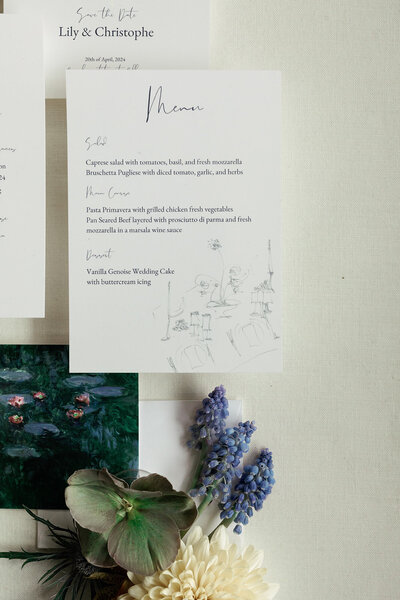 Save the Date
Lily & Christophe
20th of April, 2024
Menu
Salad
Caprese salad with tomatoes, basil, and fresh mozzarella
Bruschetta Pugliese with diced tomato, garlic, and herbs
Main Course
Pasta Primavera with grilled chicken fresh vegetables
Pan Seared Beef layered with prosciutto di parma and fresh
mozzarella in a marsala wine sauce
Dessert
Vanilla Genoise Wedding Cake
with buttercream icing